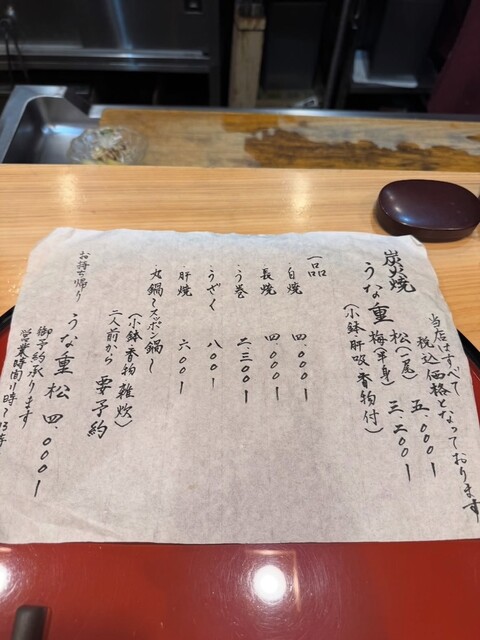 当店はすべて
税込価格となっております
炭火焼
うな重 松(一尾) 五.〇〇〇ー
梅(半身) 三.二〇〇ー
(小鉢肝吸香物付)
一品
・白焼 四.〇〇〇ー
・長焼 四.〇〇〇ー
・う巻 二.三〇〇ー
・うざく 八〇〇ー
・肝焼 六〇〇ー
・丸鍋〜スッポン鍋〜
(小鉢香物雑炊)
二人前から 要予約
お持ち帰り
うな重 松 四.〇〇〇ー
御予約承ります
営業時間11時〜